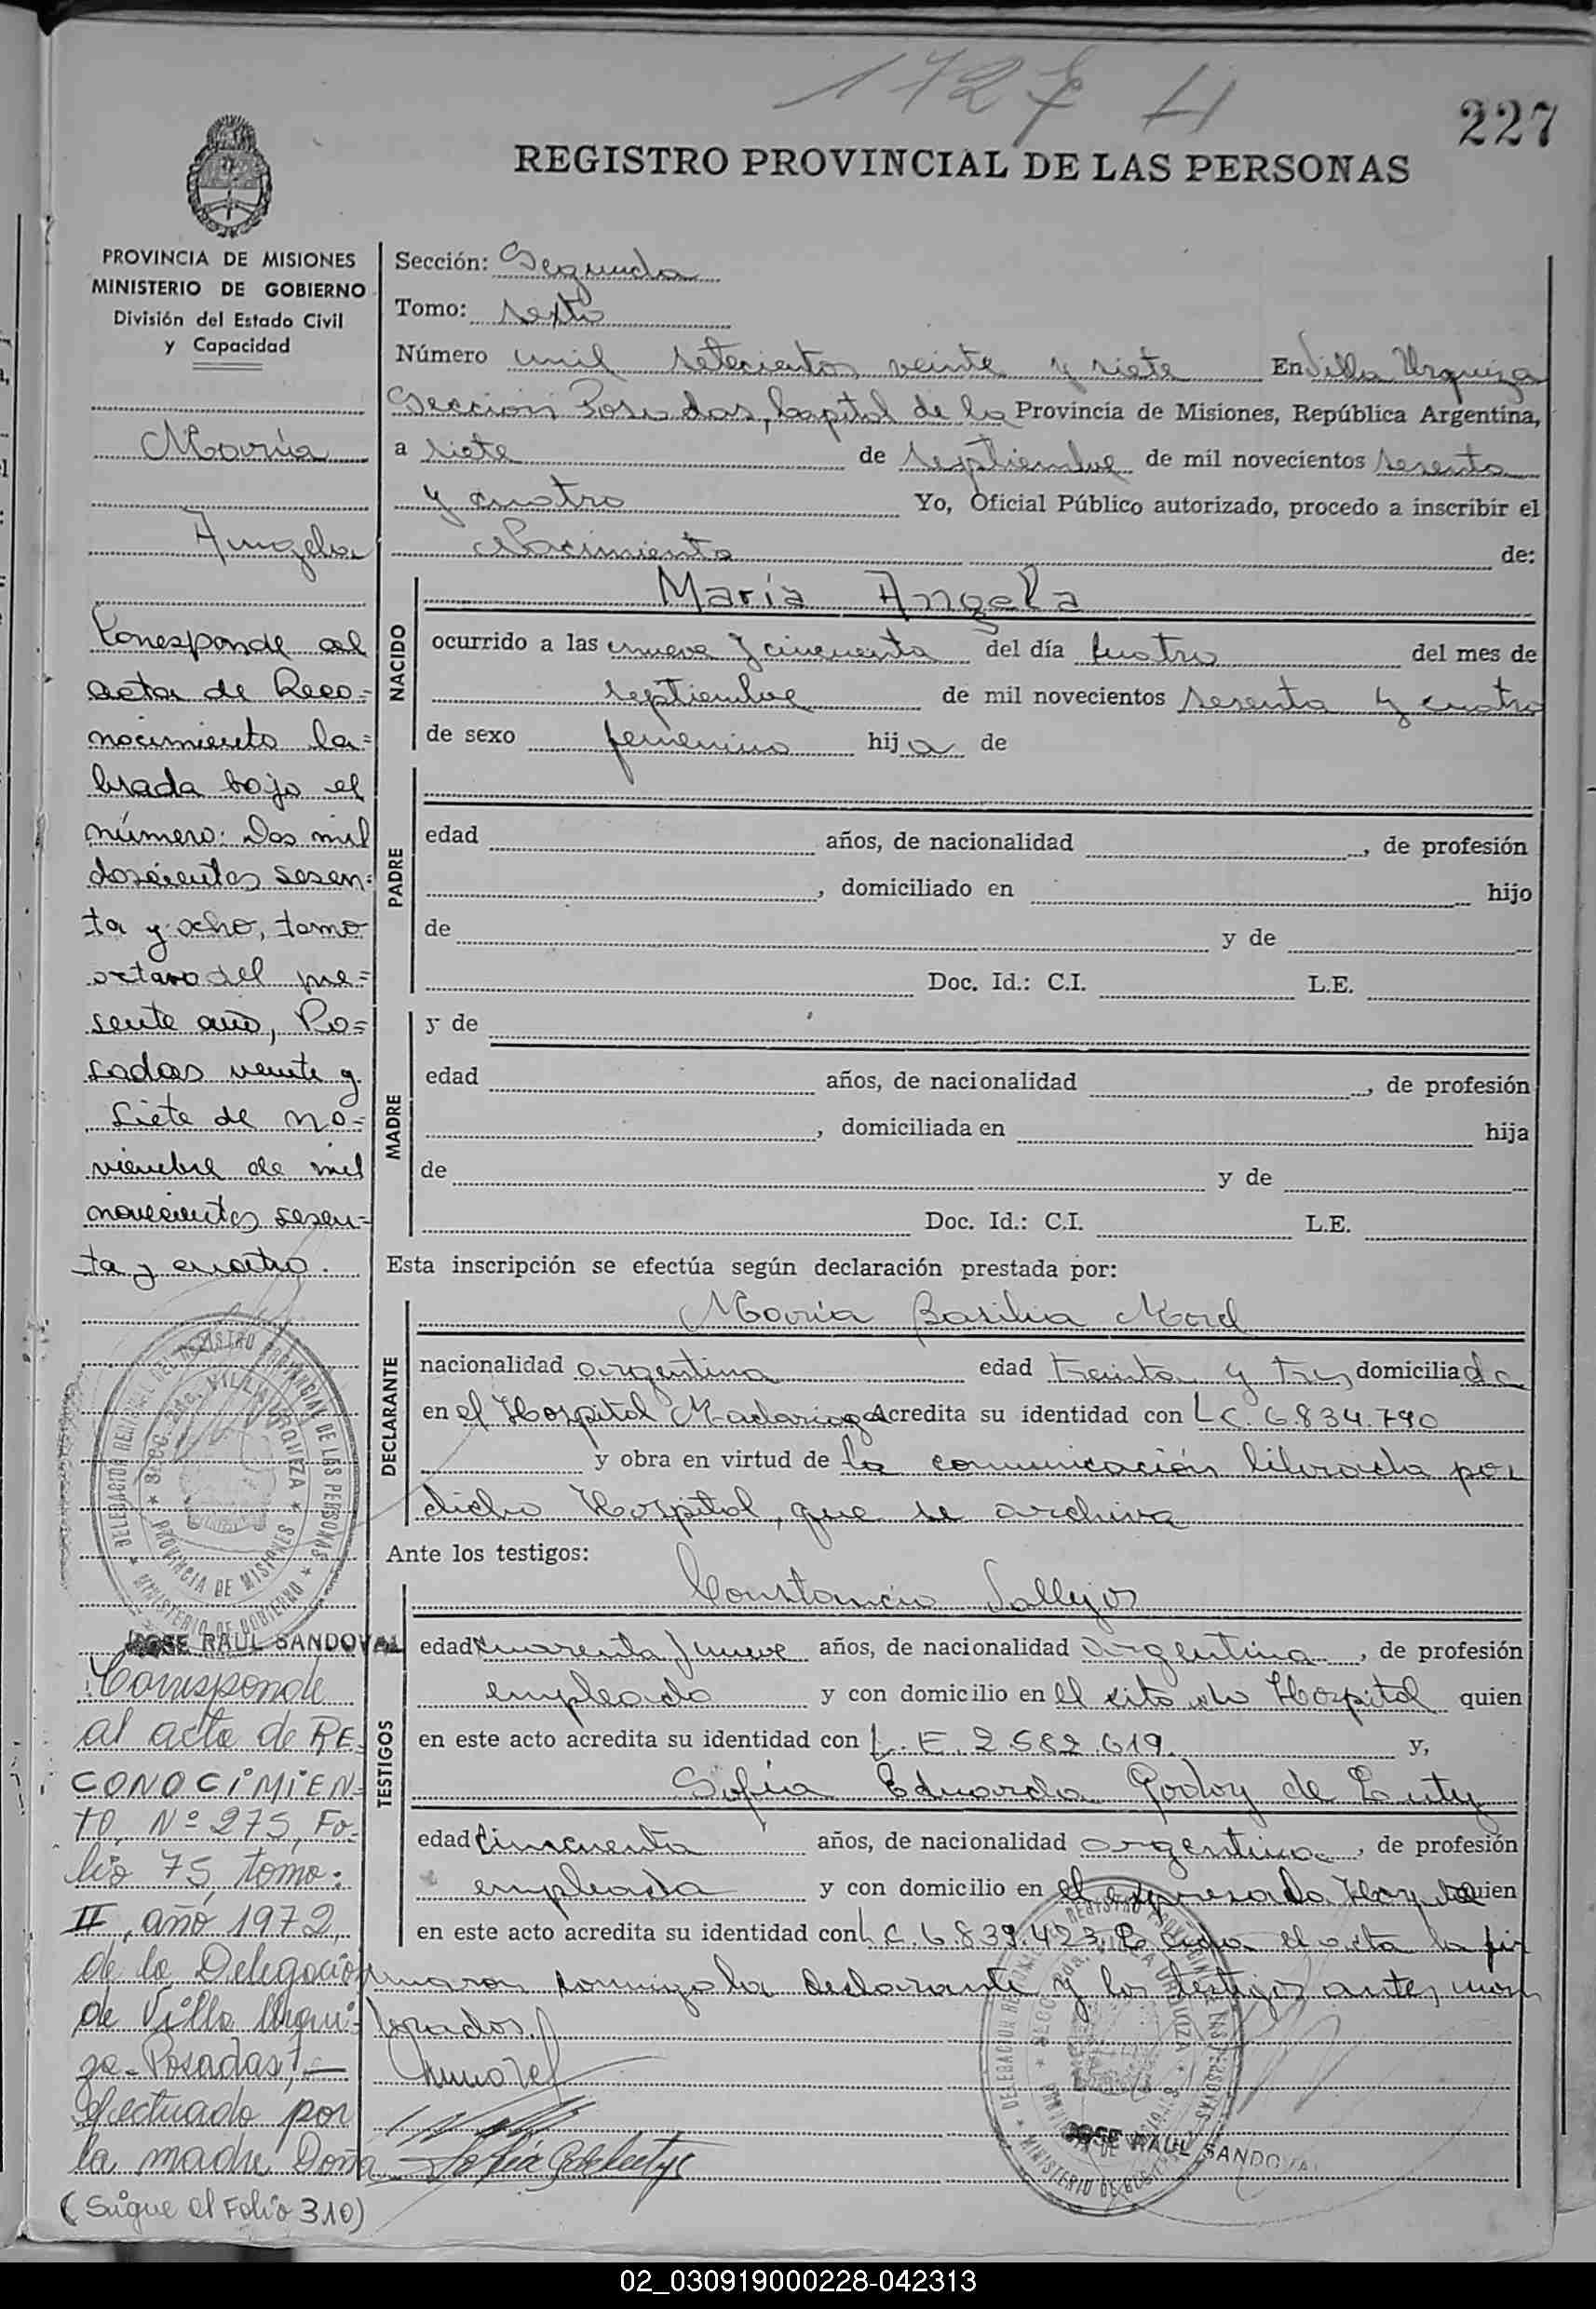 1727 H
227
REGISTRO PROVINCIAL DE LAS PERSONAS
PROVINCIA DE MISIONES
MINISTERIO DE GOBIERNO
División del Estado Civil
y Capacidad
María
Angela
Corresponde al
acta de Reco=
nocimiento la=
brada bajo el
número: Dos mil
doscientos sesen=
ta y ocho, tomo
octavo del pre=
sente año, Po=
sadas veinte y
siete de no=
viembre de mil
novecientos sesen=
ta y cuatro.
DELEGACION REGIONAL DEL REGISTRO PROVINCIAL DE LAS PERSONAS
SECC. 2da. VILLA URQUIZA
PROVINCIA DE MISIONES
MINISTERIO DE GOBIERNO
JOSE RAUL SANDOVAL
Corresponde
al acta de RE-
CONOCIMIEN-
TO, Nº 275, Fo-
lio 75, tomo:
II, año 1972,
de la Delegación
de Villa Urqui-
za-Posadas,-
efectuado por
la madre Doña
(Sigue al Folio 310)
Sección: Segunda
Tomo: sexto
Número mil setecientos veinte y siete En Villa Urquiza
Sección Posadas, Capital de la Provincia de Misiones, República Argentina,
a siete de septiembre de mil novecientos sesenta
y cuatro Yo, Oficial Público autorizado, procedo a inscribir el
Nacimiento de:
NACIDO
María Angela
ocurrido a las nueve y cincuenta del día cuatro del mes de
septiembre de mil novecientos sesenta y cuatro
de sexo femenino hija de
PADRE
edad años, de nacionalidad , de profesión
, domiciliado en hijo
de y de
Doc. Id.: C.I. L.E.
MADRE
y de
edad años, de nacionalidad , de profesión
, domiciliada en hija
de y de
Doc. Id.: C.I. L.E.
Esta inscripción se efectúa según declaración prestada por:
DECLARANTE
María Basilia Morel
nacionalidad argentina edad treinta y tres domiciliada
en el Hospital Madariaga Acredita su identidad con L.C. 6.834.790
y obra en virtud de la comunicación librada por
dicho Hospital, que se archiva
Ante los testigos:
TESTIGOS
Constancio Vallejos
edad cuarenta y nueve años, de nacionalidad argentina, de profesión
empleado y con domicilio en el Hospital quien
en este acto acredita su identidad con L.E. 2.582.619. y,
Sofía Eduarda Godoy de
edad cincuenta años, de nacionalidad argentina, de profesión
empleada y con domicilio en el expresado Hospital quien
en este acto acredita su identidad con L.C. 6.839.423. Leida el acta la fir
maron conmigo la declarante y los testigos antes nom
brados.
DELEGACION REGIONAL DEL REGISTRO PROVINCIAL DE LAS PERSONAS
SECC. 2da. VILLA URQUIZA
PROVINCIA DE MISIONES
MINISTERIO DE GOBIERNO
JOSE RAUL SANDOVAL
02_030919000228-042313